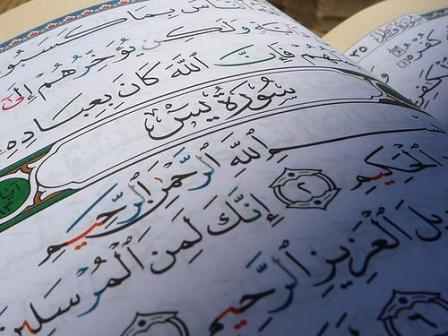 ٱلنَّاسَ بِمَا كَسَبُوا۟
وَلَٰكِن يُؤَخِّرُهُمْ إِلَىٰ
فَإِنَّ ٱللَّهَ كَانَ بِعِبَادِهِ
سُورَةُ يسٓ
بِسْمِ ٱللَّهِ ٱلرَّحْمَٰنِ ٱلرَّحِيمِ
ٱلْحَكِيمِ ٢ إِنَّكَ لَمِنَ ٱلْمُرْسَلِينَ
ٱلْعَزِيزِ ٱلرَّحِيمِ